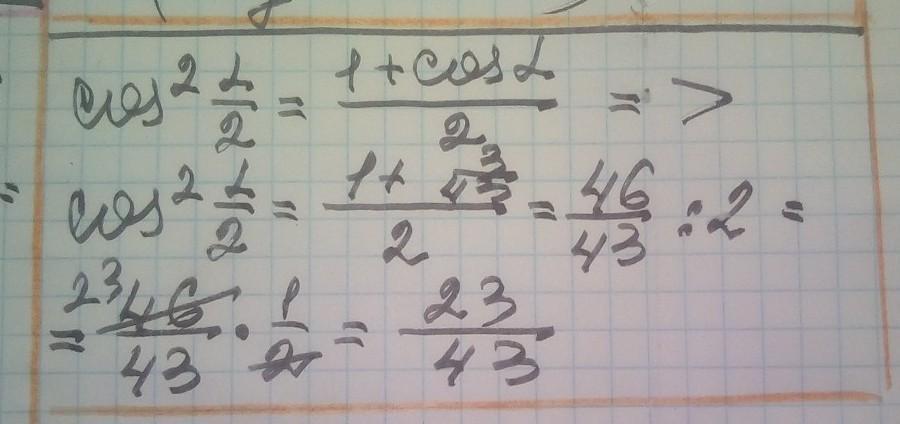 cos² α/2 = (1 + cos α)/2 =>
cos² α/2 = (1 + 3/43)/2 = 46/43 : 2 =
= 46/43 · 1/2 = 23/43